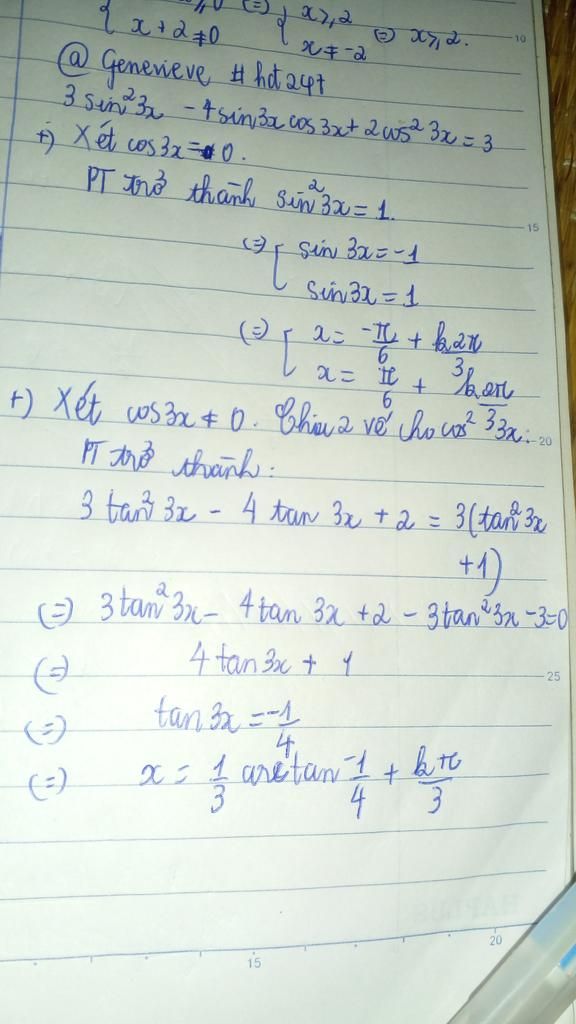 (=) { x ≥ 2
{ x + 2 ≠ 0 { x ≠ -2 (=) x ≥ 2.
10
@ Genevieve # hdt247
3 sin²3x - 4 sin3x cos3x + 2 cos²3x = 3
+) Xét cos3x = 0.
PT trở thành sin²3x = 1.
15
(=) [ sin 3x = -1
sin3x = 1
(=) [ x = -π/6 + k2π/3
x = π/6 + k2π/3
+) Xét cos3x ≠ 0. Chia 2 vế cho cos²3x:
20
PT trở thành:
3 tan²3x - 4 tan 3x + 2 = 3(tan²3x
+1)
(=) 3tan²3x - 4tan 3x + 2 - 3tan²3x - 3 = 0
(=) 4tan3x + 1
25
(=) tan3x = -1/4
(=) x = 1/3 arctan -1/4 + kπ/3
15
20